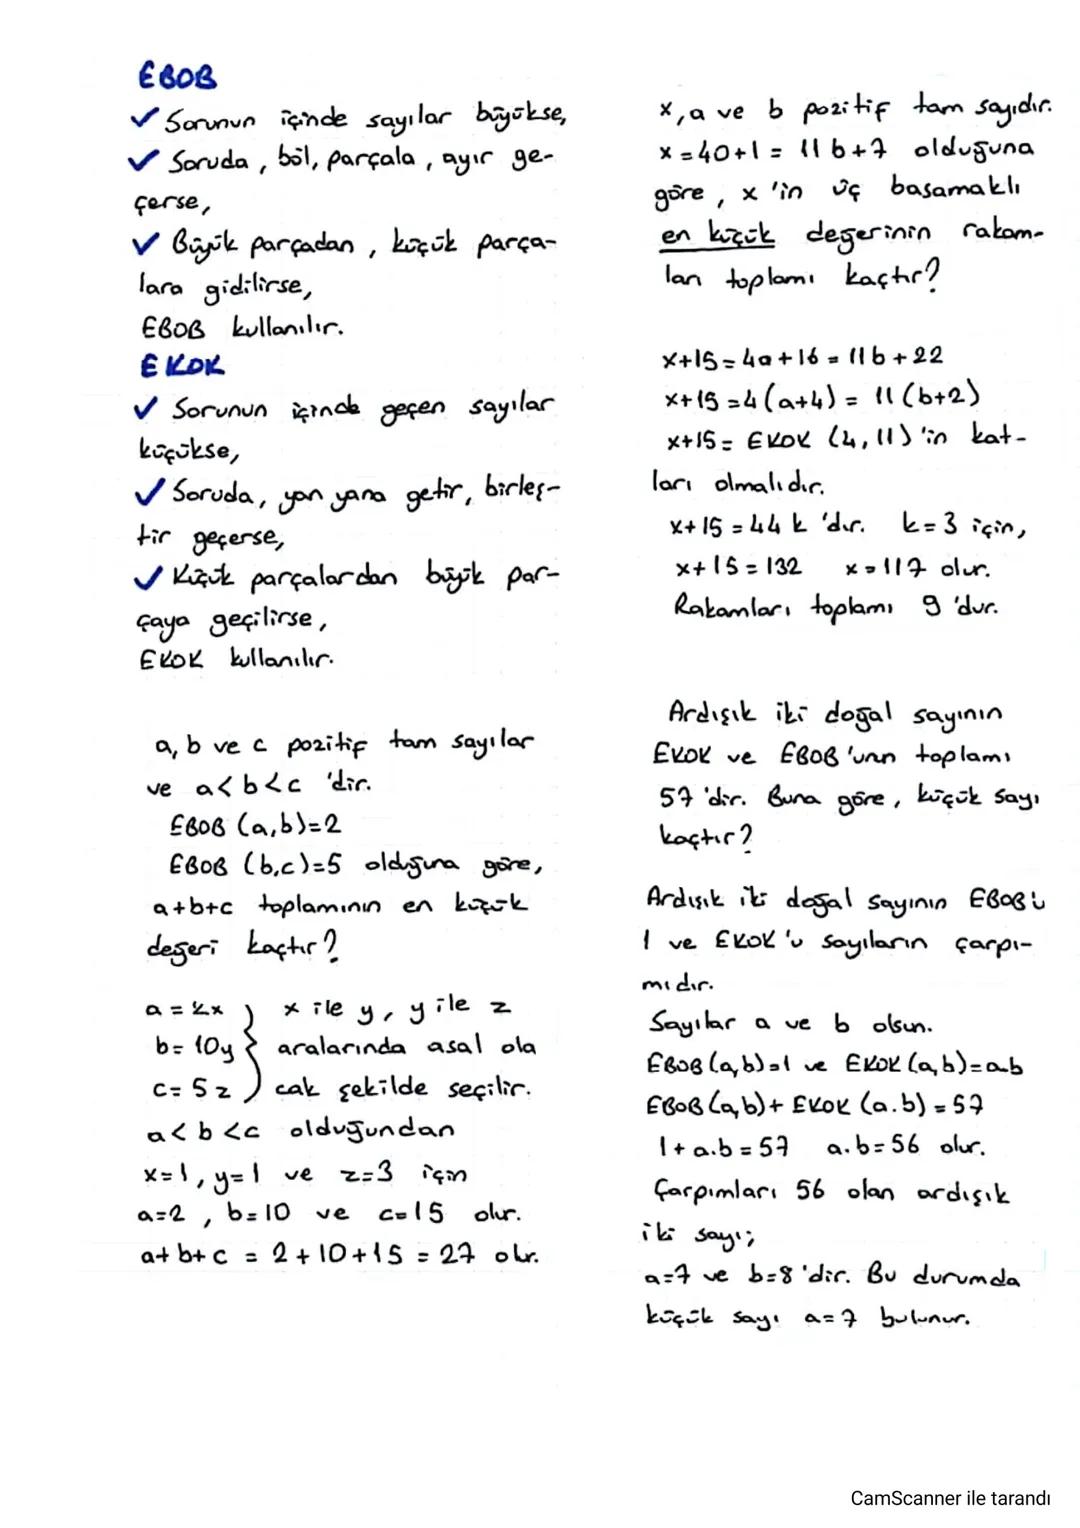 EBOB
✓ Sorunun içinde sayılar büyükse,
✓ Soruda, böl, parçala, ayır ge-
çerse,
✓ Büyük parçadan, küçük parça-
lara gidilirse,
EBOB kullanılır.
EKOK
✓ Sorunun içinde geçen sayılar
küçükse,
✓ Soruda, yan yana getir, birleş-
tir geçerse,
✓ Küçük parçalardan büyük par-
çaya geçilirse,
EKOK kullanılır.
a, b ve c pozitif tam sayılar
ve a<b<c 'dir.
EBOB (a,b)=2
EBOB (b,c)=5 olduğuna göre,
a+b+c toplamının en küçük
değeri kaçtır?
a = 2x } x ile y, y ile z
b= 10y } aralarında asal ola
c= 5z } cak şekilde seçilir.
a<b<c olduğundan
x=1, y=1 ve z=3 için
a=2, b=10 ve c=15 olur.
a+b+c = 2+10+15 = 27 olur.
x, a ve b pozitif tam sayıdır.
x=40+1= 11b+7 olduğuna
göre, x 'in üç basamaklı
en küçük değerinin rakam-
ları toplamı kaçtır?
x+15=4a+16=11b+22
x+15=4(a+4)= 11(b+2)
x+15= EKOK (4,11)'in kat-
ları olmalıdır.
x+15=44k 'dır. k=3 için,
x+15=132 x=117 olur.
Rakamları toplamı 9 'dur.
Ardışık iki doğal sayının
EKOK ve EBOB'unn toplamı
57 'dir. Buna göre, küçük sayı
kaçtır?
Ardışık iki doğal sayının EBOB'u
1 ve EKOK 'u sayıların çarpı-
mıdır.
Sayılar a ve b olsun.
EBOB(a,b)=1 ve EKOK(a,b)=a.b
EBOB(a,b)+ EKOK (a.b) = 57
1+a.b=57 a.b=56 olur.
Çarpımları 56 olan ardışık
iki sayı;
a=7 ve b=8 'dir. Bu durumda
küçük sayı a=7 bulunur.
CamScanner ile tarandı